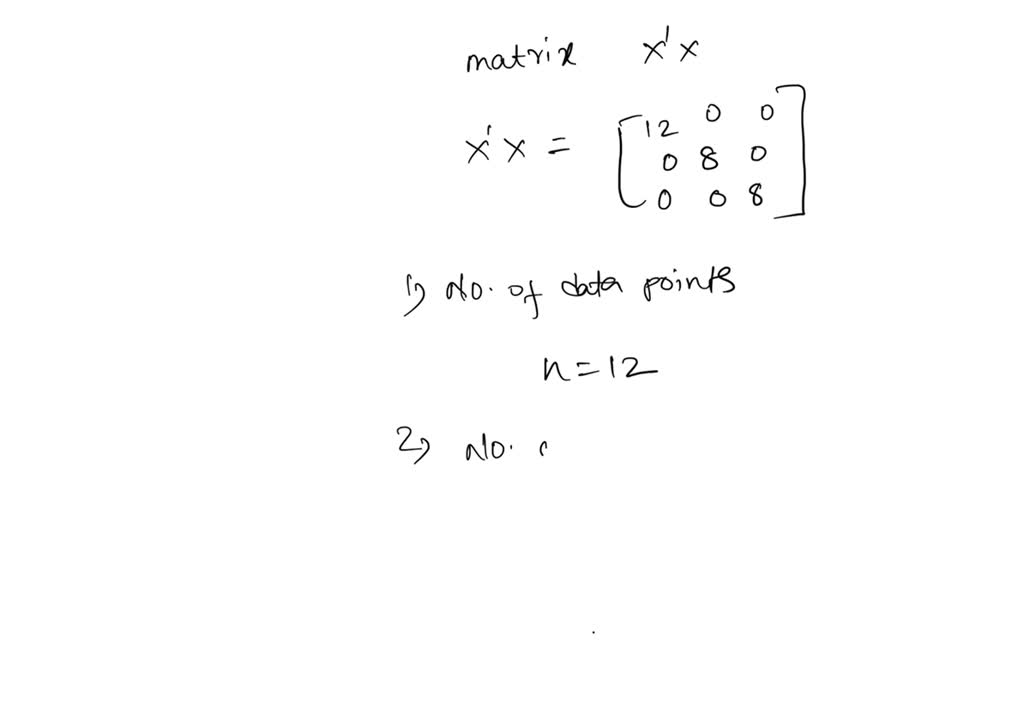 matrix x'x
x'x = [12 0 0
0 8 0
0 0 8]
1) No. of data points
n=12
2) No.